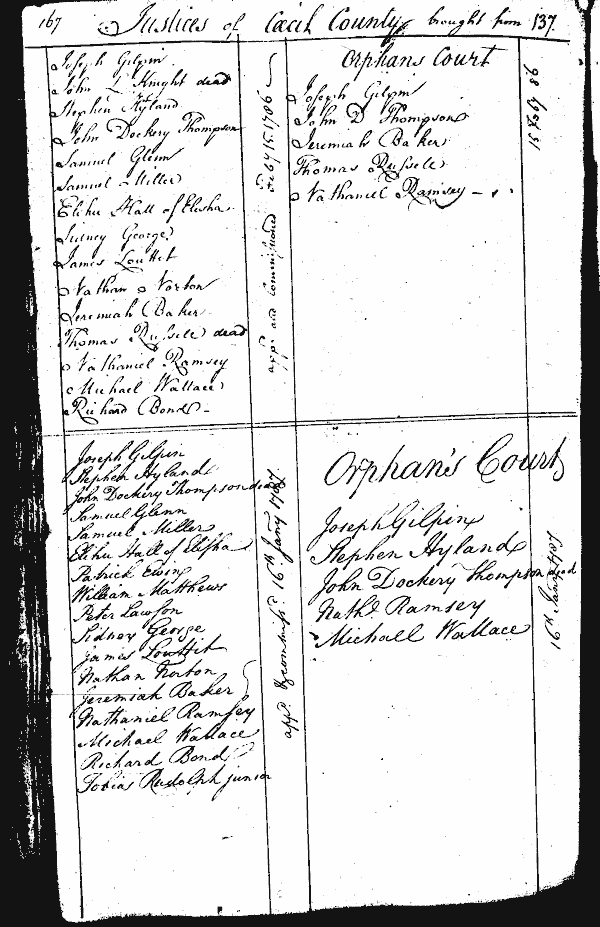 167 Justices of Cecil County brought from 137.
Joseph Gilpin
John L Knight dead
Stephen Hyland
John Dockery Thompson
Samuel Glenn
Samuel Miller
Elihu Hall of Elisha
Sidney George
James Louttit
Nathan Norton
Jeremiah Baker
Thomas Russell dead
Nathaniel Ramsey
Michael Wallace
Richard Bond
appd and commissioned Feby 15 1786
Orphans Court
Joseph Gilpin
John D Thompson
Jeremiah Baker
Thomas Russell
Nathaniel Ramsey
15 Feby 86
Joseph Gilpin
Stephen Hyland
John Dockery Thompson dead
Samuel Glenn
Samuel Miller
Elihu Hall of Elisha
Patrick Ewing
William Matthews
Peter Lawson
Sidney George
James Louttit
Nathan Norton
Jeremiah Baker
Nathaniel Ramsey
Michael Wallace
Richard Bond
Tobias Rudolph junior
appd. & commissd. 16th Jany 1787
Orphan's Court
Joseph Gilpin
Stephen Hyland
John Dockery Thompson dead
Nathl. Ramsey
Michael Wallace
16th Jany 1787